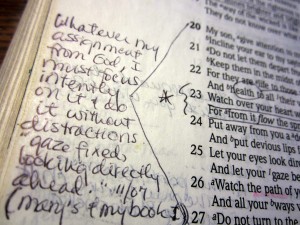 Whatever my
assignment
from God, I
must focus
intently
on it & do
it without
distractions
gaze fixed,
looking directly
ahead. 11/07
(mary's & my book
They do not
20 My son, give attention
Incline your ear
21 Do not let them
Keep them in the
22 For they are life to those
And health to all
23 Watch over your heart
For from it flow the
24 Put away from you a
And put devious lips
25 Let your eyes look
And let your gaze be
26 Watch the path of
And all your ways
27 Do not turn to the